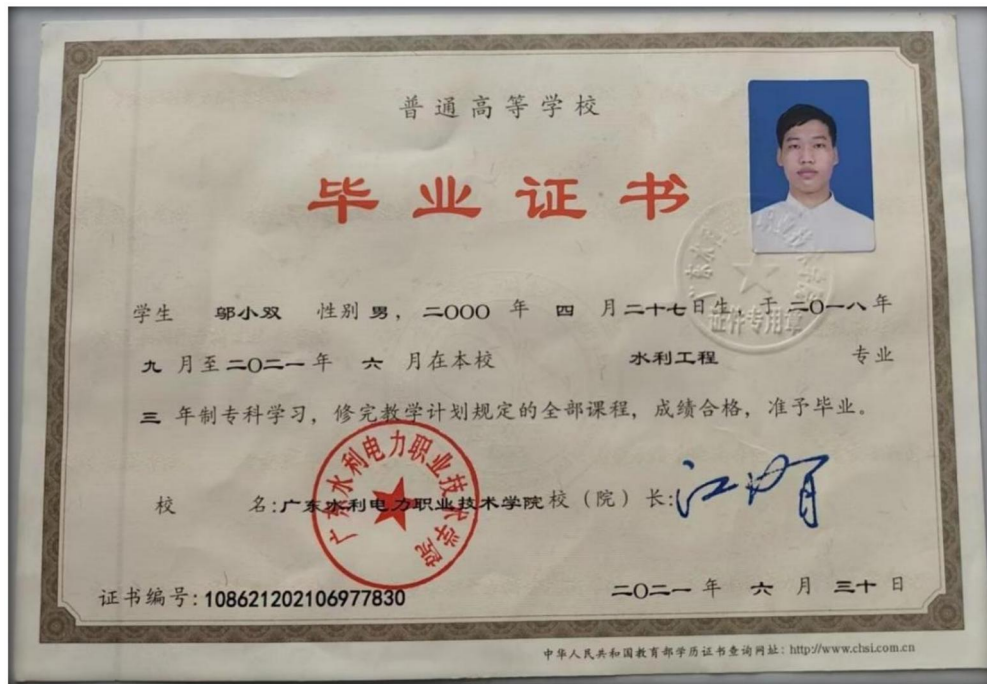 普通高等学校
毕业证书
学生 邬小双 性别 男，二〇〇〇 年 四 月 二十七日生，于 二〇一八年
九 月至 二〇二一 年 六 月在本校 水利工程 专业
三 年制专科学习，修完教学计划规定的全部课程，成绩合格，准予毕业。
校 名：广东水利电力职业技术学院 校（院）长：
广东水利电力职业技术学院
证件专用章
证书编号：108621202106977830
二〇二一 年 六 月 三十 日
中华人民共和国教育部学历证书查询网址：http://www.chsi.com.cn